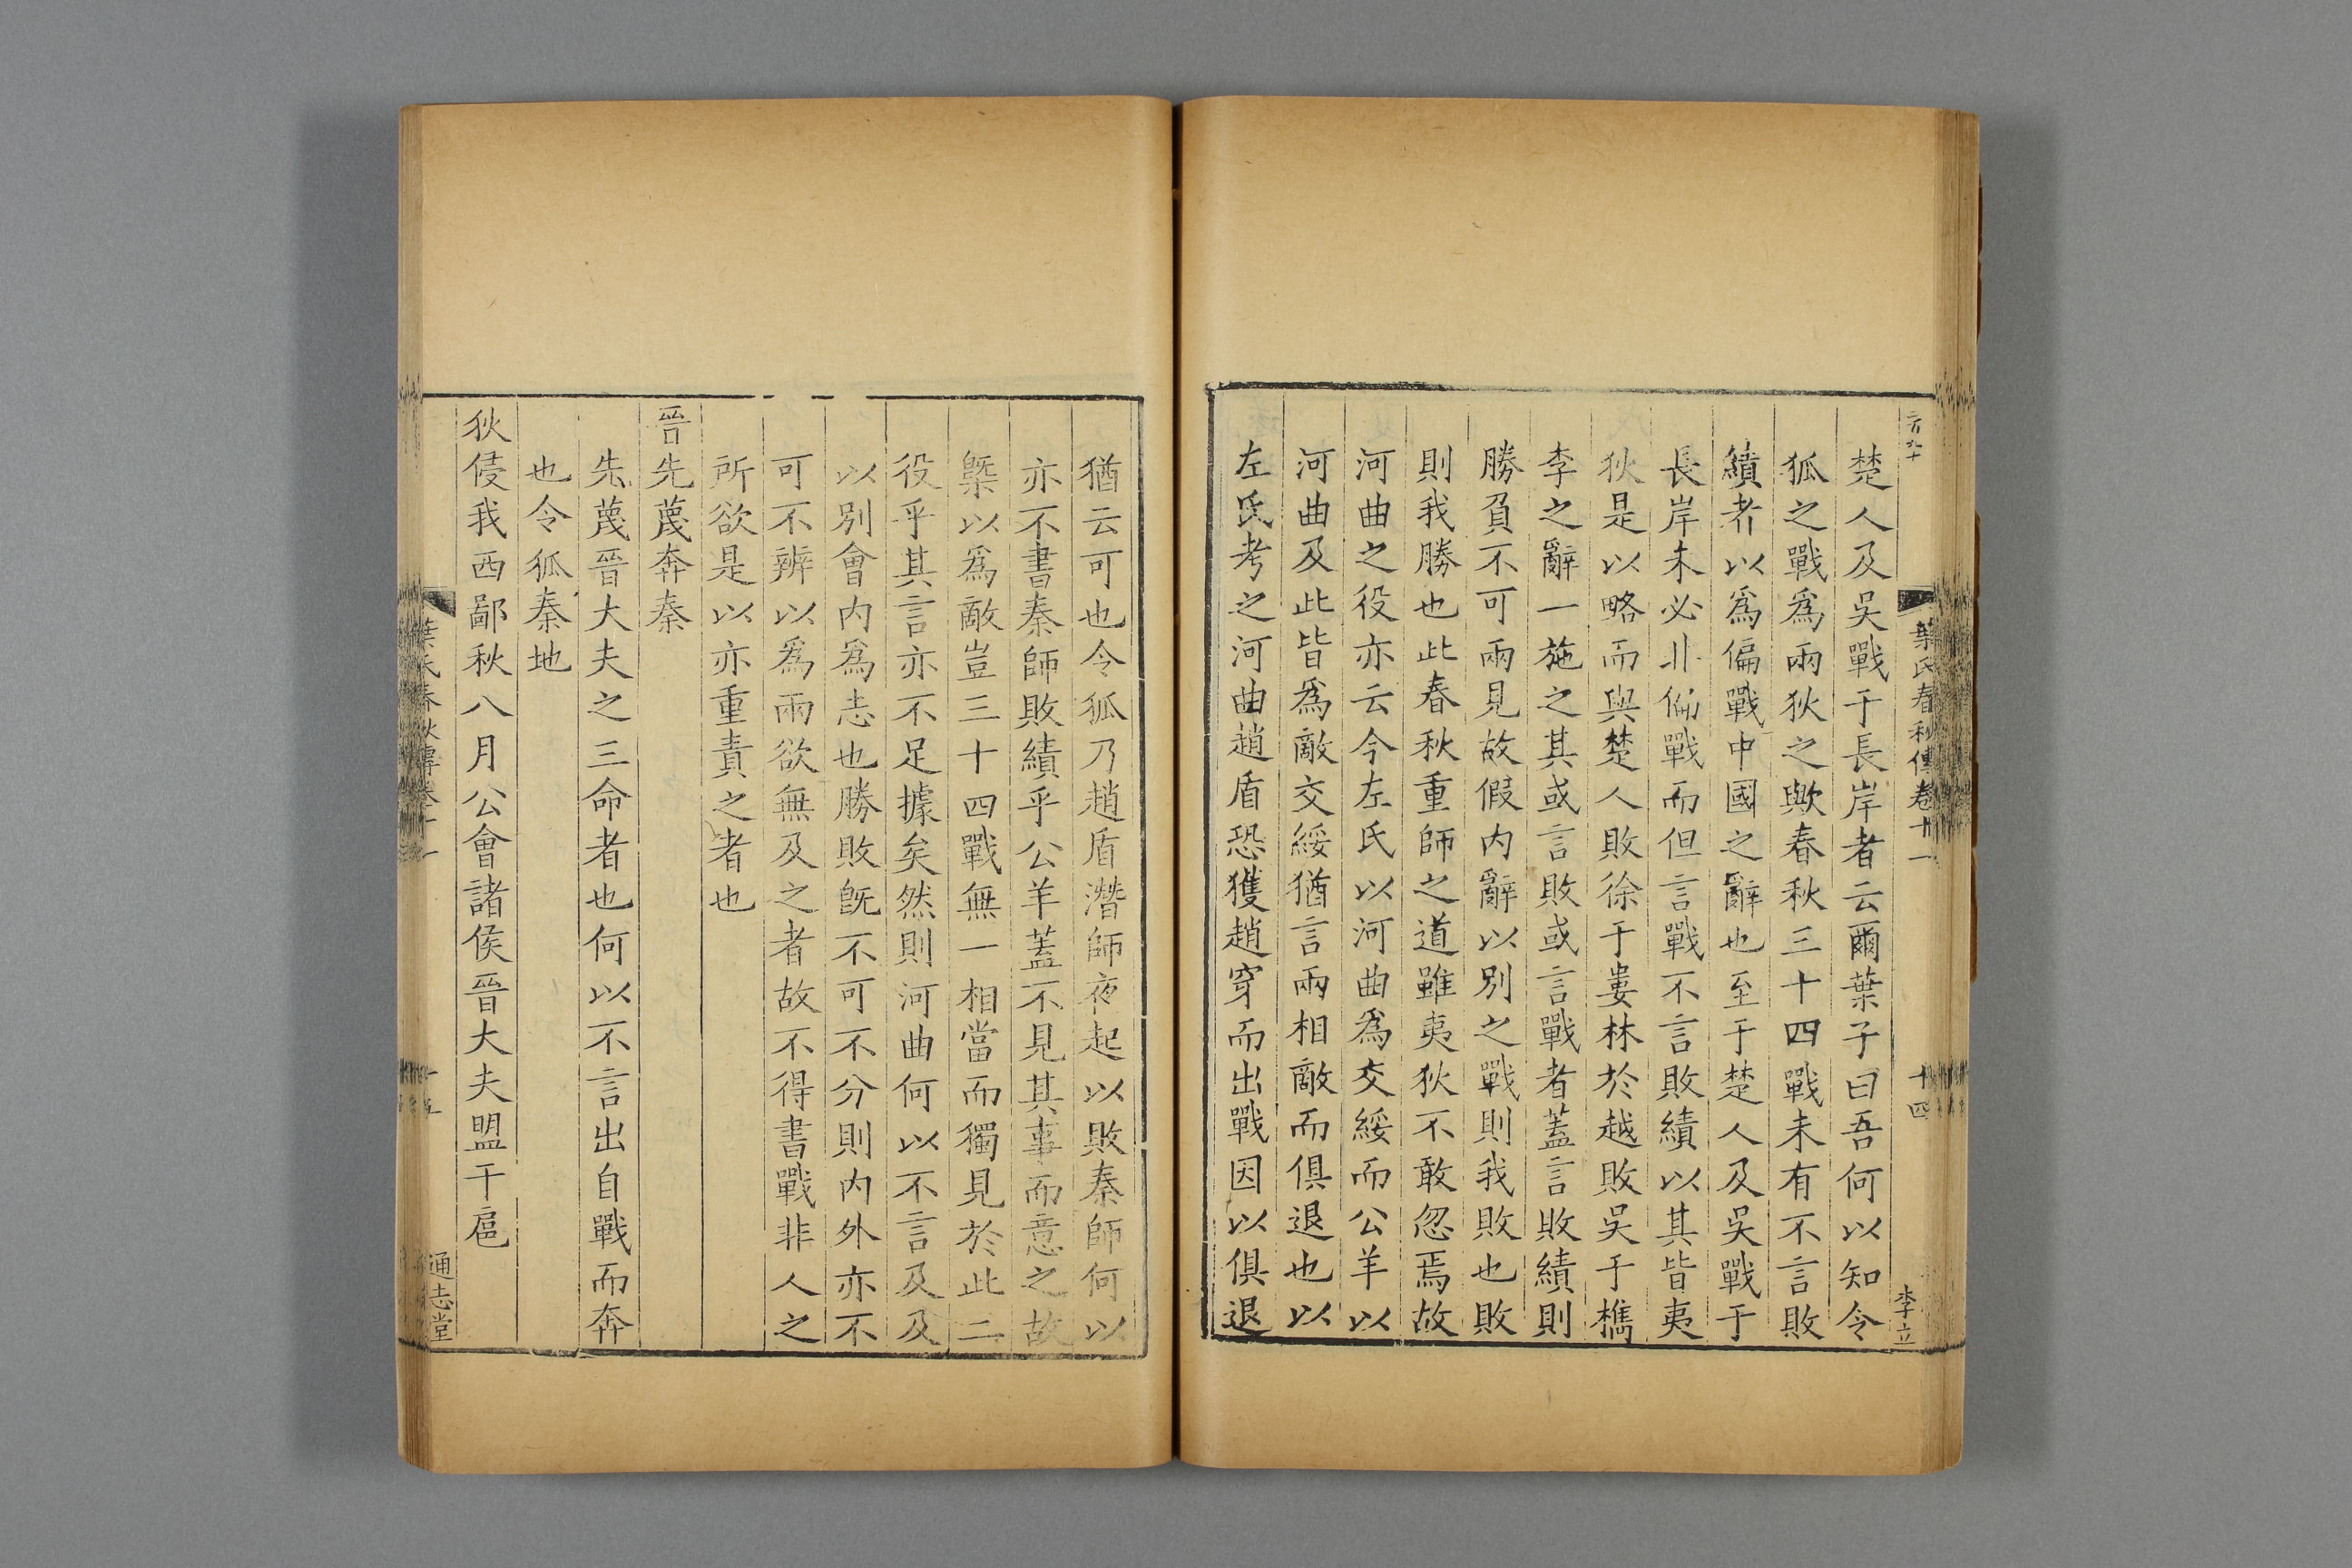 葉氏春秋傳卷十一
十四
李立
楚人及吳戰于長岸者云爾葉子曰吾何以知令
狐之戰爲兩狄之歟春秋三十四戰未有不言敗
績者以爲偏戰中國之辭也至于楚人及吳戰于
長岸未必非偏戰而但言戰不言敗績以其皆夷
狄是以略而與楚人敗徐于婁林於越敗吳于檇
李之辭一施之其或言敗或言戰者蓋言敗績則
勝負不可兩見故假内辭以別之戰則我敗也敗
則我勝也此春秋重師之道雖夷狄不敢忽焉故
河曲之役亦云今左氏以河曲爲交綏而公羊以
河曲及此皆爲敵交綏猶言兩相敵而俱退也以
左氏考之河曲趙盾恐獲趙穿而出戰因以俱退
猶云可也令狐乃趙盾潛師夜起以敗秦師何以
亦不書秦師敗績乎公羊蓋不見其事而意之故
槩以爲敵豈三十四戰無一相當而獨見於此二
役乎其言亦不足據矣然則河曲何以不言及及
以別會内爲志也勝敗旣不可不分則内外亦不
可不辨以爲兩欲無及之者故不得書戰非人之
所欲是以亦重責之者也
晉先蔑奔秦
先蔑晉大夫之三命者也何以不言出自戰而奔
也令狐秦地
狄侵我西鄙秋八月公會諸侯晉大夫盟于扈
葉氏春秋傳卷十一
十五
通志堂